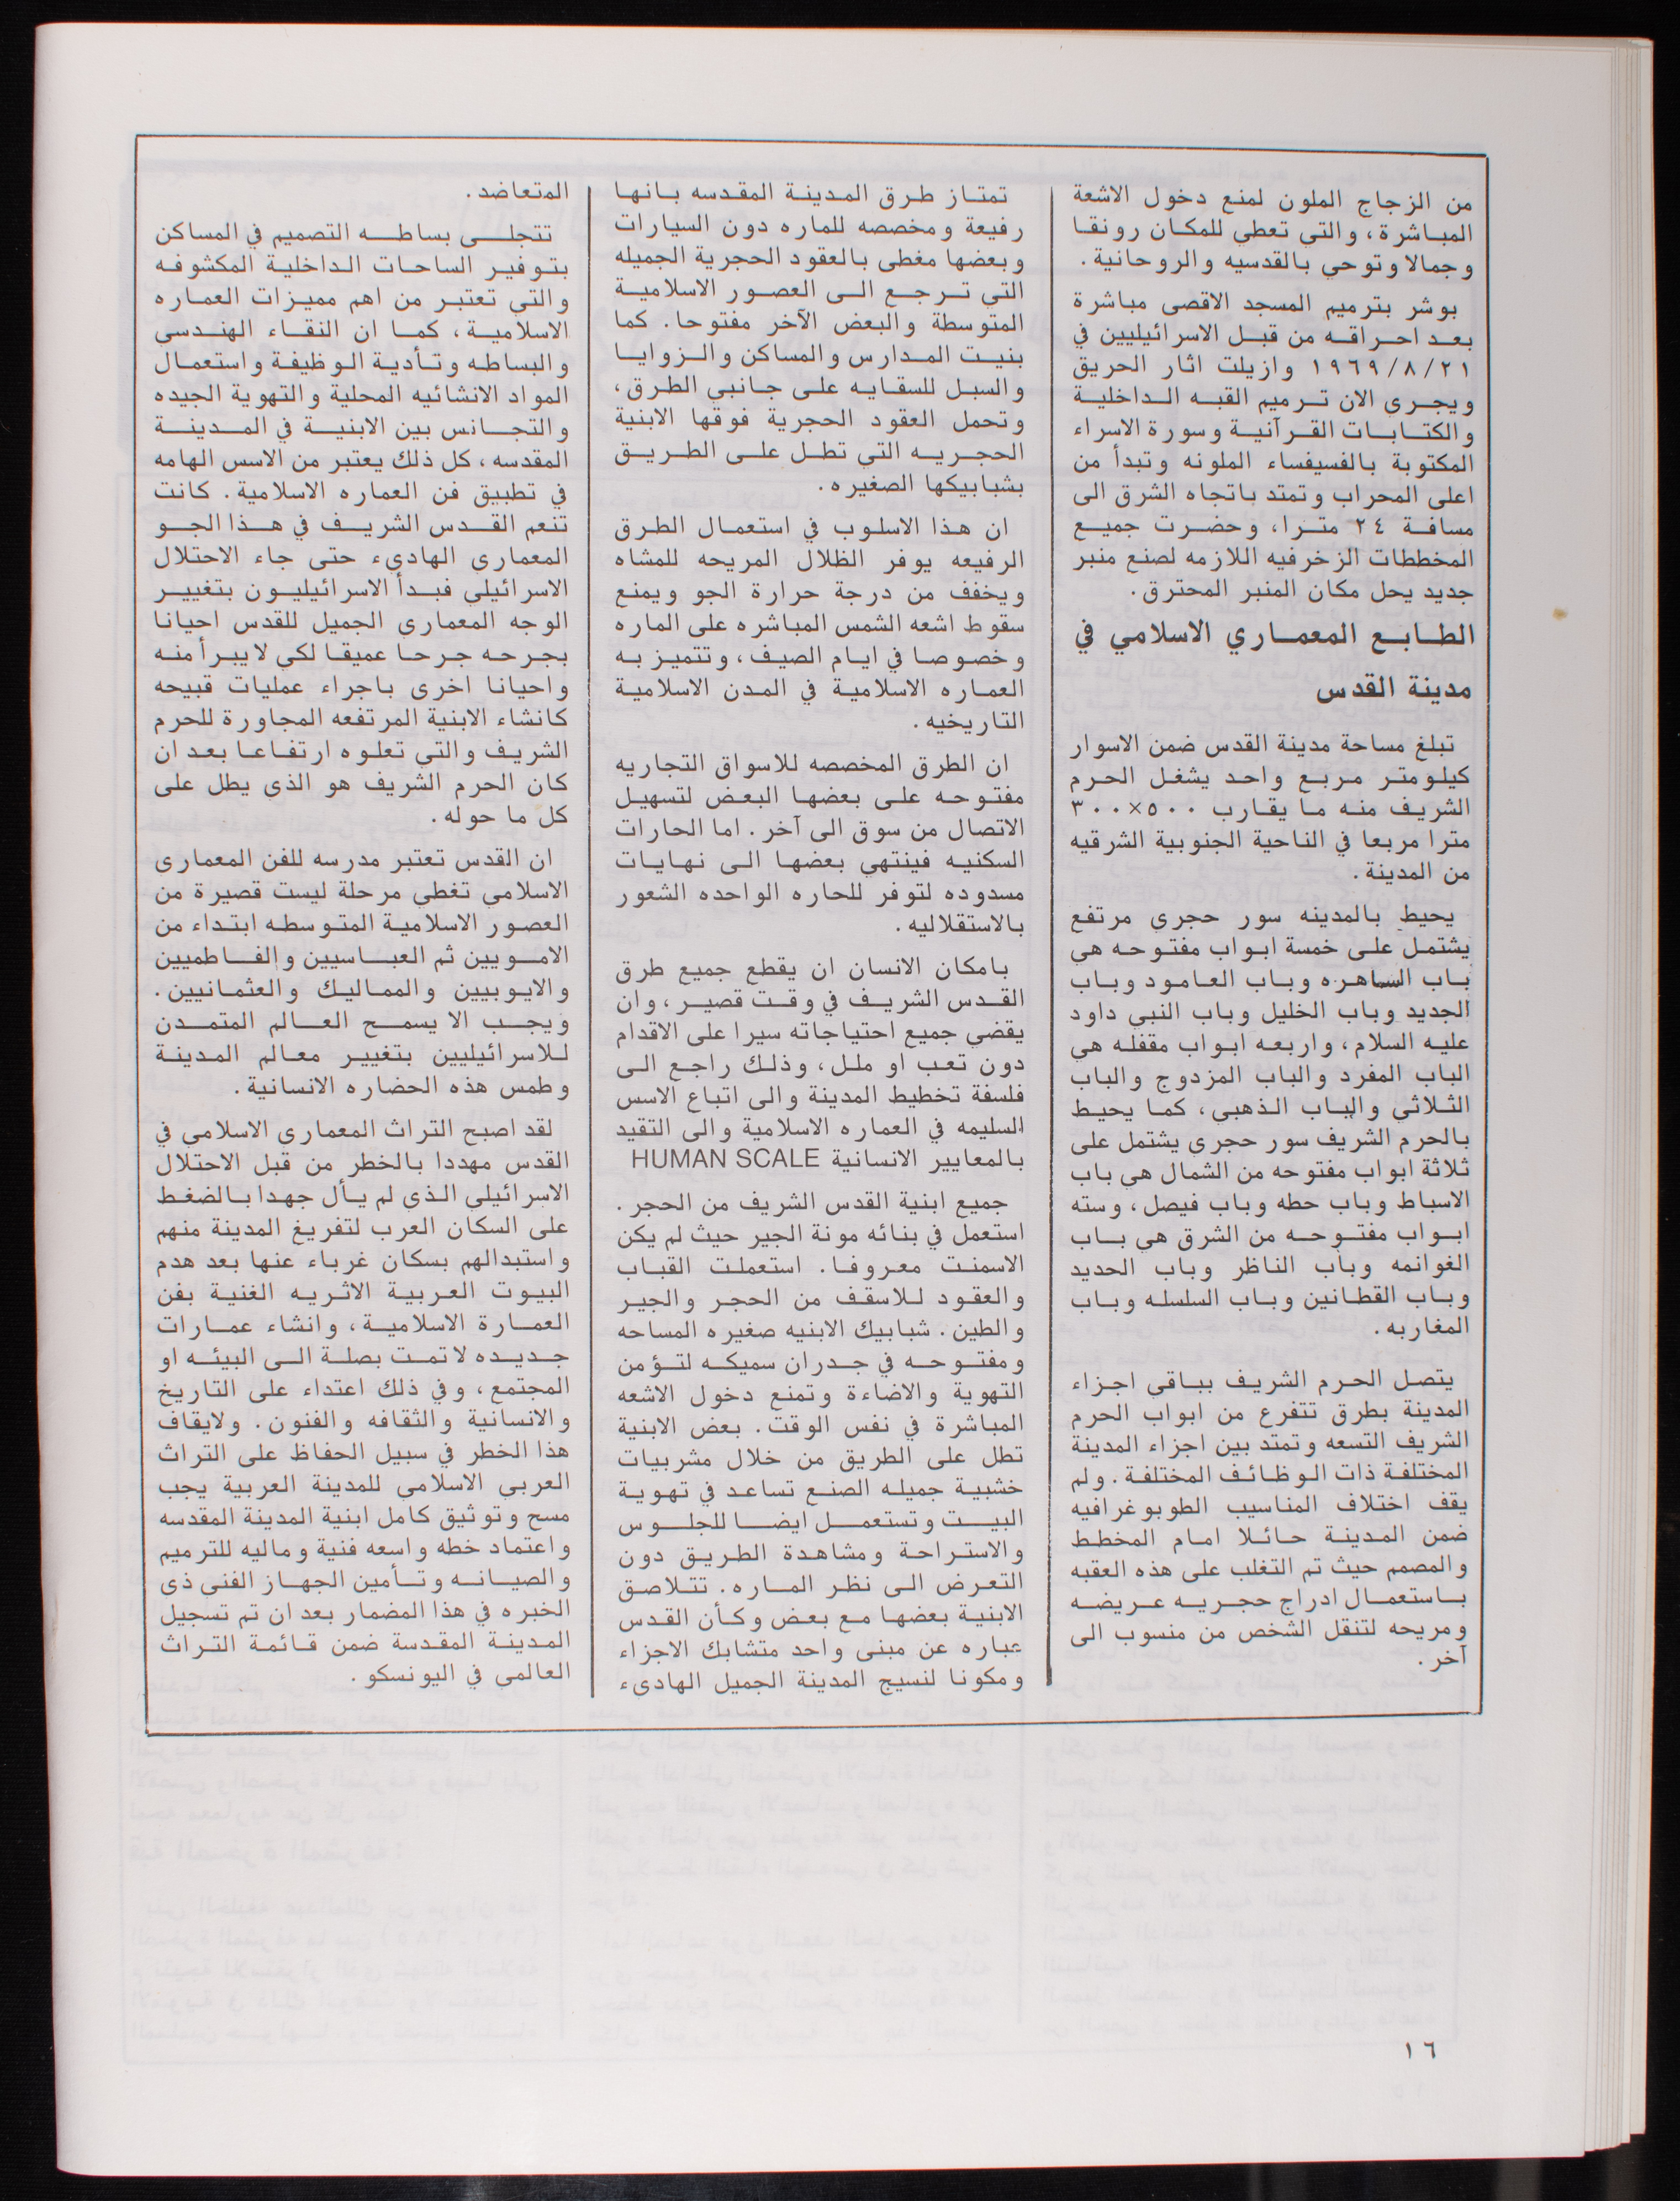 من الزجاج الملون لمنع دخول الاشعة
المباشرة، والتي تعطي للمكان رونقا
وجمالا وتوحي بالقدسيه والروحانية.
بوشر بترميم المسجد الاقصى مباشرة
بعد احراقه من قبل الاسرائيليين في
١٩٦٩/٨/٢١ وازيلت اثار الحريق
ويجري الان ترميم القبه الداخلية
والكتابات القرآنية وسورة الاسراء
المكتوبة بالفسيفساء الملونه وتبدأ من
اعلى المحراب وتمتد باتجاه الشرق الى
مسافة ٢٤ مترا، وحضرت جميع
المخططات الزخرفيه اللازمه لصنع منبر
جديد يحل مكان المنبر المحترق.
الطابع المعماري الاسلامي في
مدينة القدس
تبلغ مساحة مدينة القدس ضمن الاسوار
كيلومتر مربع واحد يشغل الحرم
الشريف منه ما يقارب ٥٠٠×٣٠٠
مترا مربعا في الناحية الجنوبية الشرقيه
من المدينة.
يحيط بالمدينه سور حجري مرتفع
يشتمل على خمسة ابواب مفتوحه هي
باب الساهره وباب العامود وباب
الجديد وباب الخليل وباب النبي داود
عليه السلام، واربعه ابواب مقفله هي
الباب المفرد والباب المزدوج والباب
الثلاثي والباب الذهبي، كما يحيط
بالحرم الشريف سور حجري يشتمل على
ثلاثة ابواب مفتوحه من الشمال هي باب
الاسباط وباب حطه وباب فيصل، وسته
ابواب مفتوحه من الشرق هي باب
الغوانمه وباب الناظر وباب الحديد
وباب القطانين وباب السلسله وباب
المغاربه.
يتصل الحرم الشريف بباقي اجزاء
المدينة بطرق تتفرع من ابواب الحرم
الشريف التسعه وتمتد بين اجزاء المدينة
المختلفة ذات الوظائف المختلفة. ولم
يقف اختلاف المناسيب الطوبوغرافيه
ضمن المدينة حائلا امام المخطط
والمصمم حيث تم التغلب على هذه العقبه
باستعمال ادراج حجريه عريضه
ومريحه لتنقل الشخص من منسوب الى
آخر.
تمتاز طرق المدينة المقدسه بانها
رفيعة ومخصصه للماره دون السيارات
وبعضها مغطى بالعقود الحجرية الجميله
التي ترجع الى العصور الاسلامية
المتوسطة والبعض الآخر مفتوحا. كما
بنيت المدارس والمساكن والزوايا
والسبل للسقايه على جانبي الطرق،
وتحمل العقود الحجرية فوقها الابنية
الحجريه التي تطل على الطريق
بشبابيكها الصغيره.
ان هذا الاسلوب في استعمال الطرق
الرفيعه يوفر الظلال المريحه للمشاه
ويخفف من درجة حرارة الجو ويمنع
سقوط اشعه الشمس المباشره على الماره
وخصوصا في ايام الصيف، وتتميز به
العماره الاسلامية في المدن الاسلامية
التاريخيه.
ان الطرق المخصصه للاسواق التجاريه
مفتوحه على بعضها البعض لتسهيل
الاتصال من سوق الى آخر. اما الحارات
السكنيه فينتهي بعضها الى نهايات
مسدوده لتوفر للحاره الواحده الشعور
بالاستقلاليه.
بامكان الانسان ان يقطع جميع طرق
القدس الشريف في وقت قصير، وان
يقضي جميع احتياجاته سيرا على الاقدام
دون تعب او ملل، وذلك راجع الى
فلسفة تخطيط المدينة والى اتباع الاسس
السليمه في العماره الاسلامية والى التقيد
بالمعايير الانسانية HUMAN SCALE
جميع ابنية القدس الشريف من الحجر.
استعمل في بنائه مونة الجير حيث لم يكن
الاسمنت معروفا. استعملت القباب
والعقود للاسقف من الحجر والجير
والطين. شبابيك الابنيه صغيره المساحه
ومفتوحه في جدران سميكه لتؤمن
التهوية والاضاءة وتمنع دخول الاشعه
المباشرة في نفس الوقت. بعض الابنية
تطل على الطريق من خلال مشربيات
خشبية جميله الصنع تساعد في تهوية
البيت وتستعمل ايضا للجلوس
والاستراحة ومشاهدة الطريق دون
التعرض الى نظر الماره. تتلاصق
الابنية بعضها مع بعض وكأن القدس
عباره عن مبنى واحد متشابك الاجزاء
ومكونا لنسيج المدينة الجميل الهادىء
المتعاضد.
تتجلى بساطه التصميم في المساكن
بتوفير الساحات الداخلية المكشوفه
والتي تعتبر من اهم مميزات العماره
الاسلامية، كما ان النقاء الهندسي
والبساطه وتأدية الوظيفة واستعمال
المواد الانشائيه المحلية والتهوية الجيده
والتجانس بين الابنية في المدينة
المقدسه، كل ذلك يعتبر من الاسس الهامه
في تطبيق فن العماره الاسلامية. كانت
تنعم القدس الشريف في هذا الجو
المعماري الهادىء حتى جاء الاحتلال
الاسرائيلي فبدأ الاسرائيليون بتغيير
الوجه المعماري الجميل للقدس احيانا
بجرحه جرحا عميقا لكي لا يبرأ منه
واحيانا اخرى باجراء عمليات قبيحه
كانشاء الابنية المرتفعه المجاورة للحرم
الشريف والتي تعلوه ارتفاعا بعد ان
كان الحرم الشريف هو الذي يطل على
كل ما حوله.
ان القدس تعتبر مدرسه للفن المعماري
الاسلامي تغطي مرحلة ليست قصيرة من
العصور الاسلامية المتوسطه ابتداء من
الامويين ثم العباسيين والفاطميين
والايوبيين والمماليك والعثمانيين.
ويجب الا يسمح العالم المتمدن
للاسرائيليين بتغيير معالم المدينة
وطمس هذه الحضاره الانسانية.
لقد اصبح التراث المعماري الاسلامي في
القدس مهددا بالخطر من قبل الاحتلال
الاسرائيلي الذي لم يأل جهدا بالضغط
على السكان العرب لتفريغ المدينة منهم
واستبدالهم بسكان غرباء عنها بعد هدم
البيوت العربية الاثريه الغنية بفن
العمارة الاسلامية، وانشاء عمارات
جديده لا تمت بصلة الى البيئه او
المجتمع، وفي ذلك اعتداء على التاريخ
والانسانية والثقافه والفنون. ولايقاف
هذا الخطر في سبيل الحفاظ على التراث
العربي الاسلامي للمدينة العربية يجب
مسح وتوثيق كامل ابنية المدينة المقدسه
واعتماد خطه واسعه فنية وماليه للترميم
والصيانه وتأمين الجهاز الفني ذي
الخبره في هذا المضمار بعد ان تم تسجيل
المدينة المقدسة ضمن قائمة التراث
العالمي في اليونسكو.
١٦